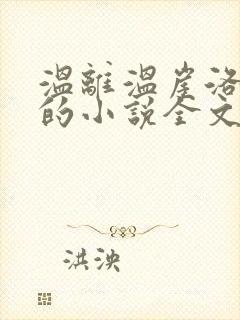 溫離溫崖洛
的小說全文
洪泱